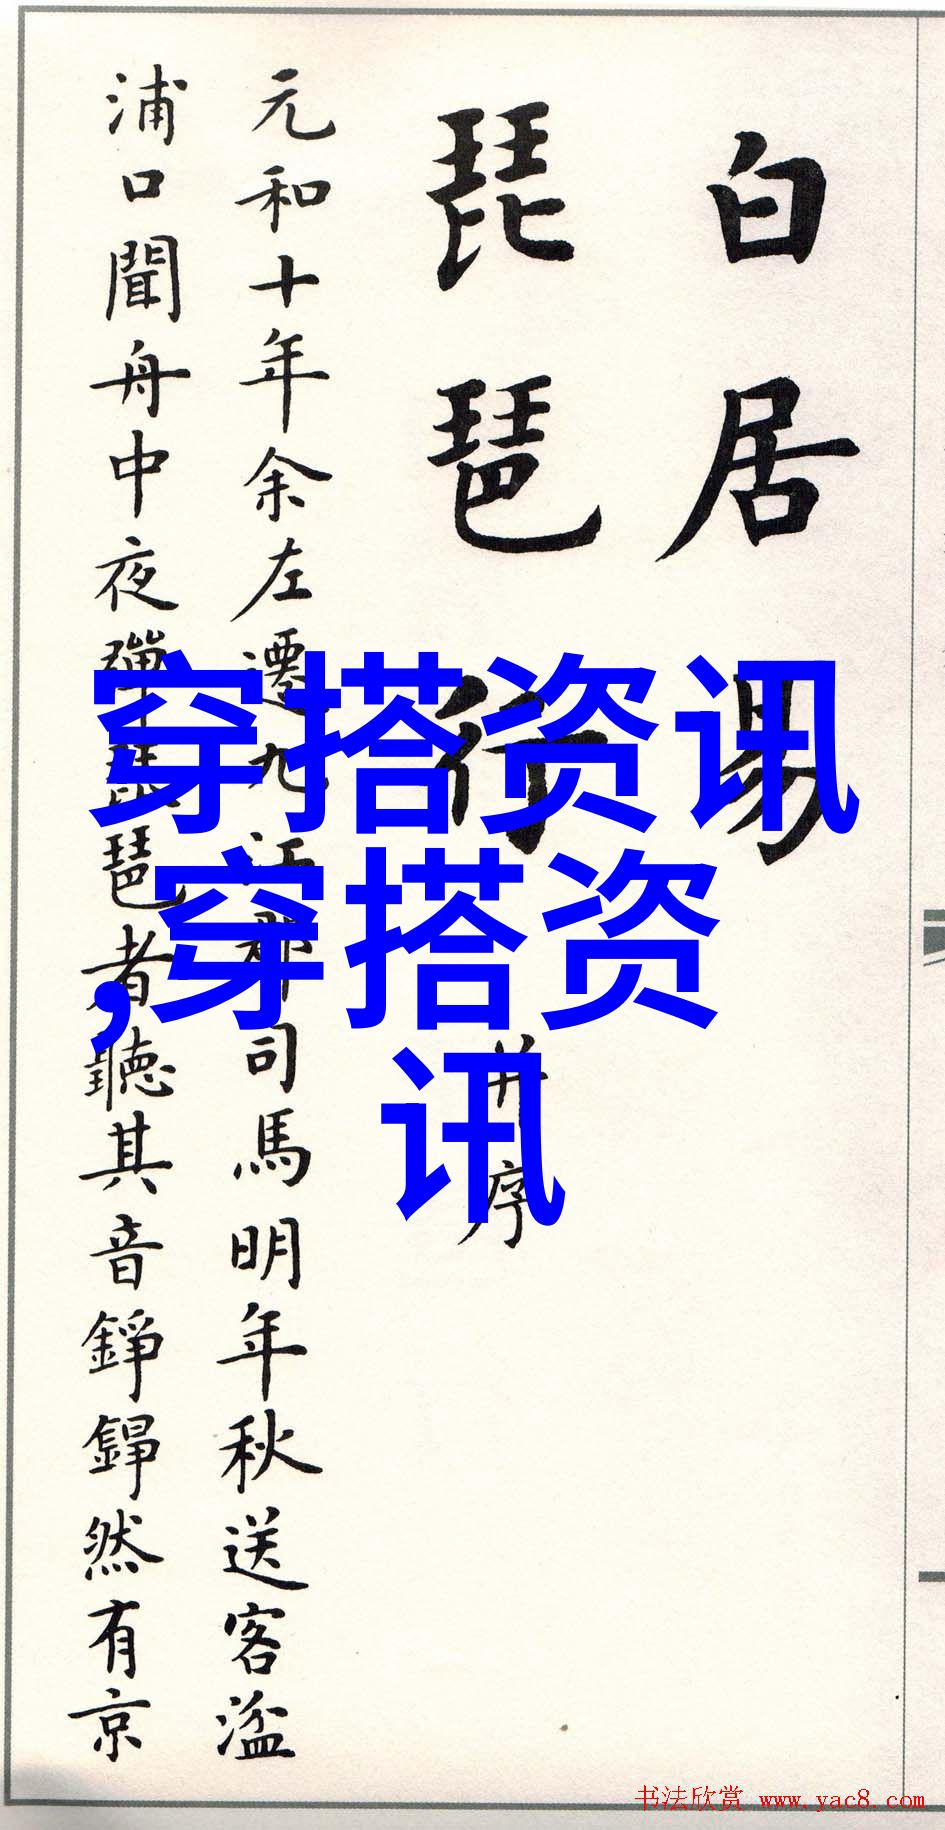 白居易
琵琶行
并序
元和十年余左遷九江郡司馬明年秋送客湓
浦口聞舟中夜彈琵琶者聽其音錚錚然有京
穿搭资讯
,穿搭资
讯
书法欣赏 www.yac8.com